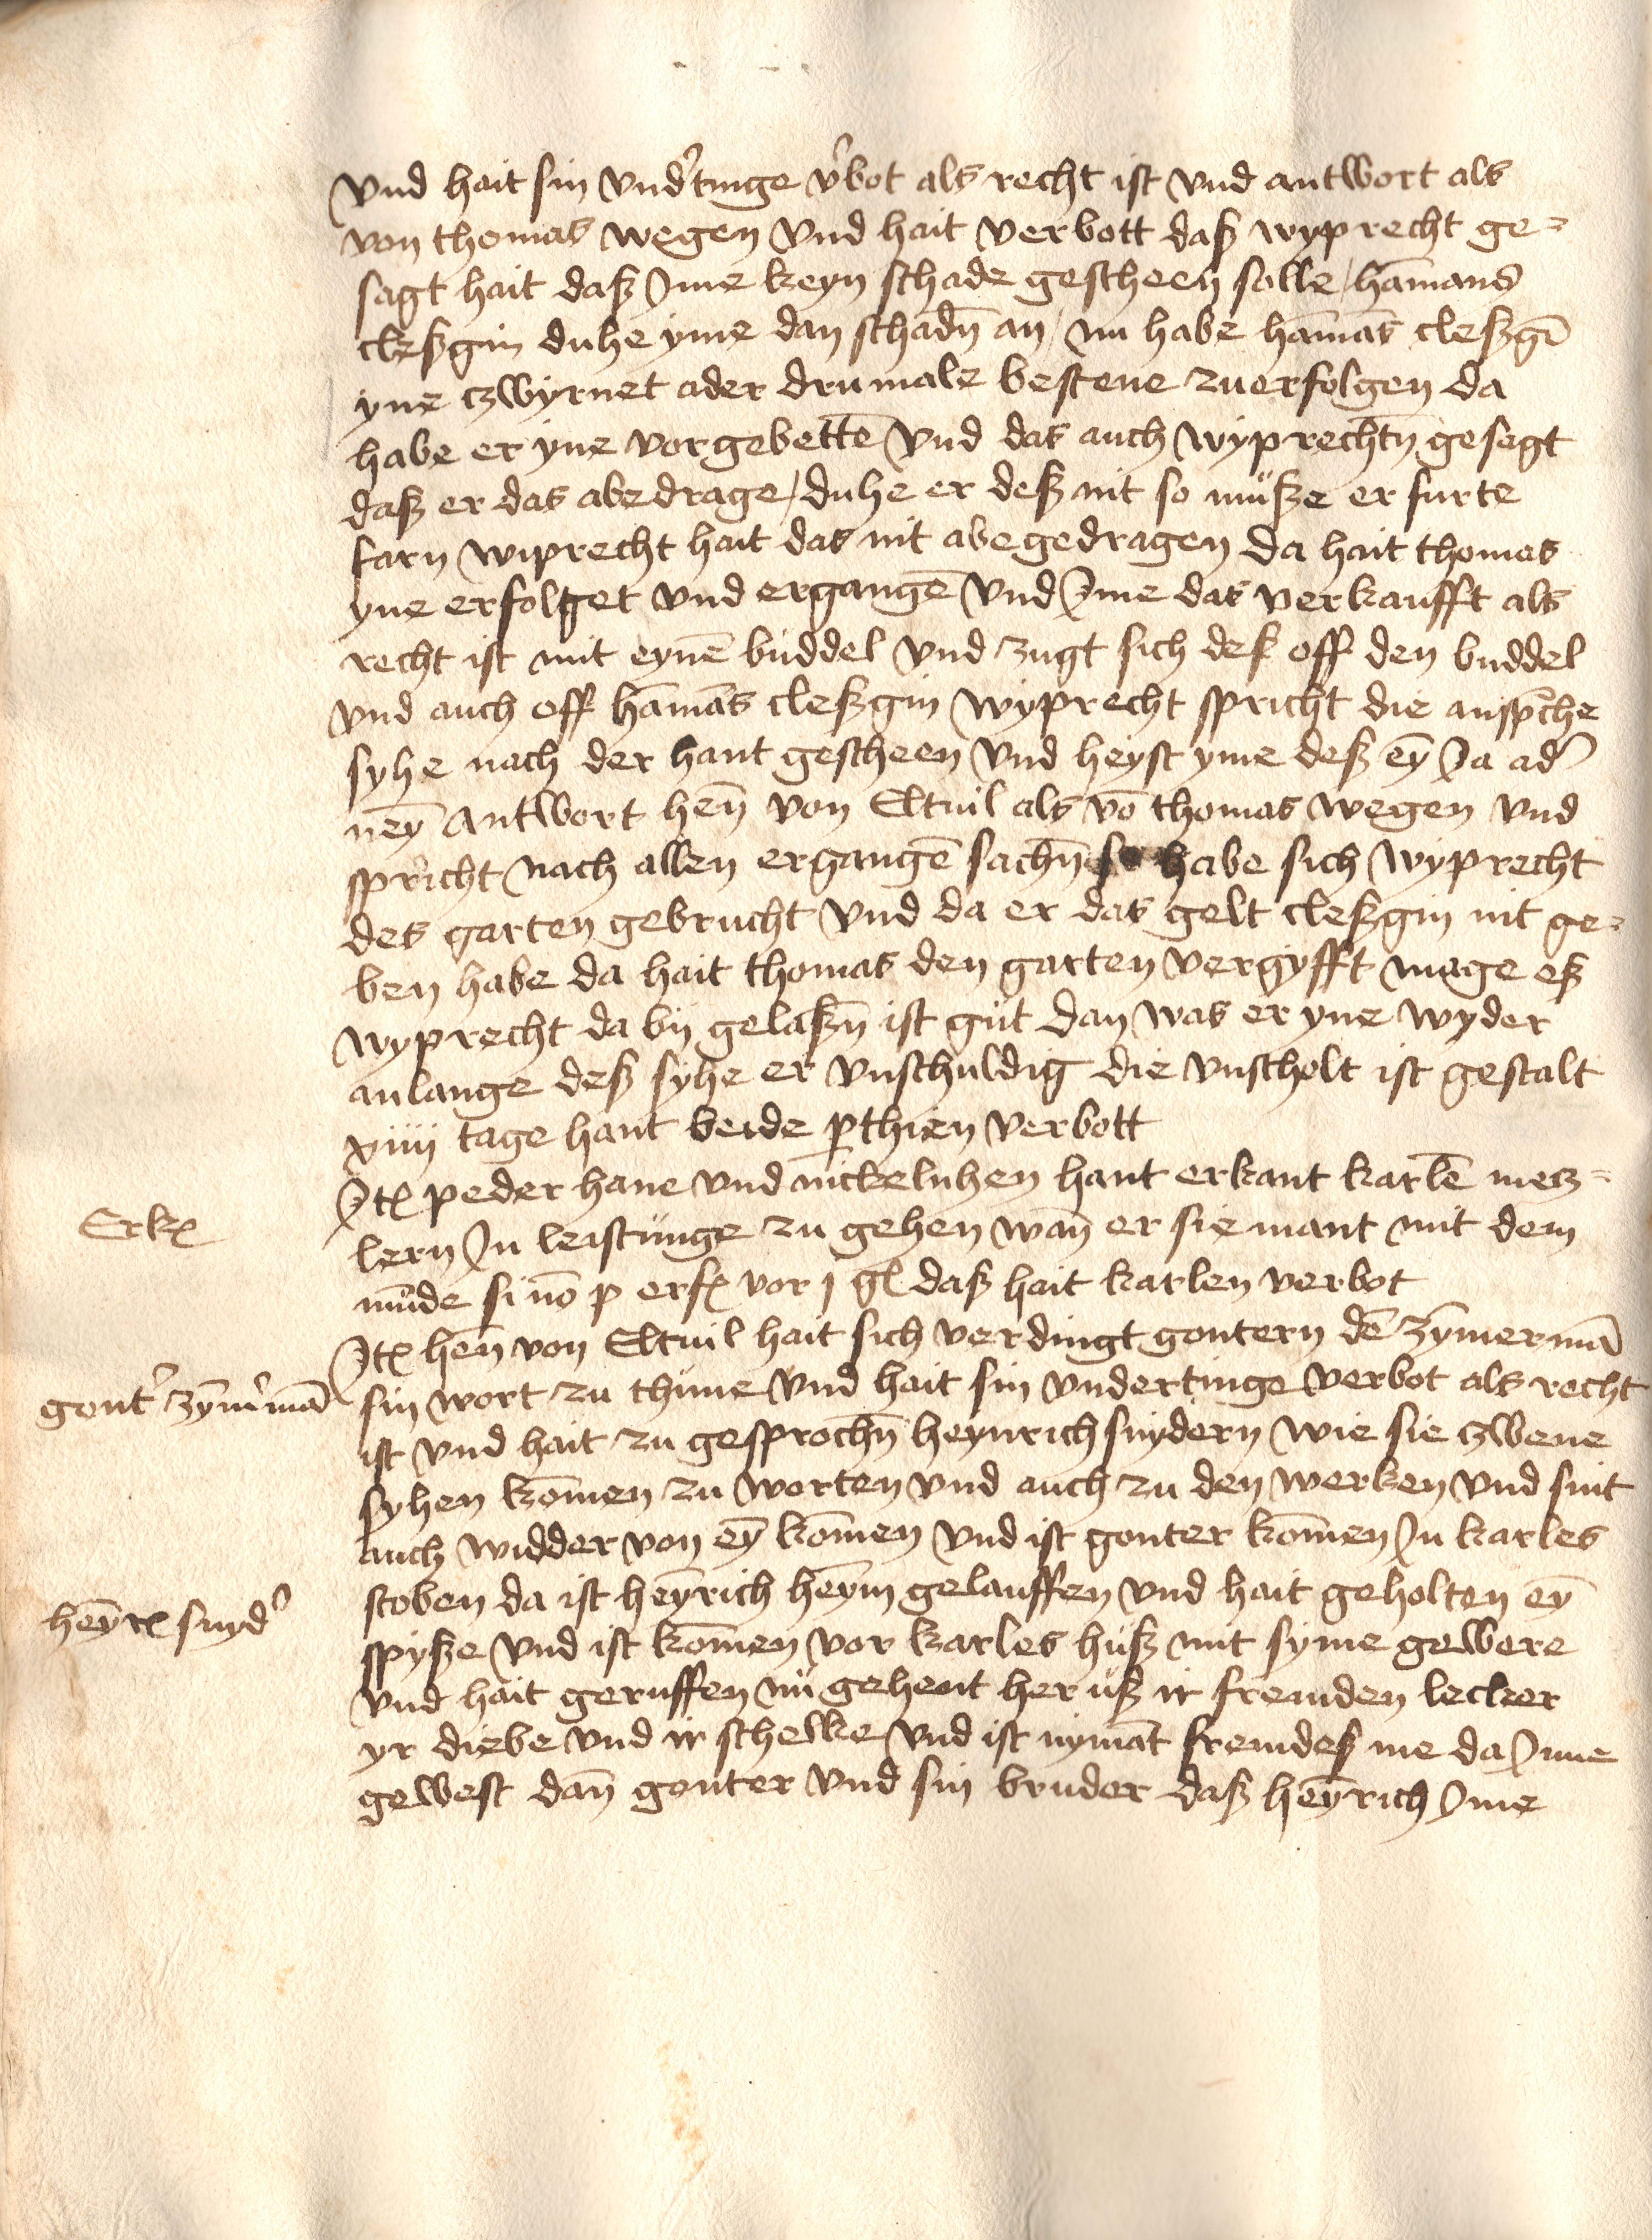 vnd hait sin vnd'tinge v'bot als recht ist vnd antwort als
von thomas wegen vnd hait verbott daß wyprecht ge=
sagt hait daß Jme keyn schade gescheen solle / ham̄ans
cleßgin duhe yme dan schadn̄ an / nu habe ham̄as cleßgī
yne czwyrnet ader drumale bestene zuerfolgen da
habe er yne vorgebettē vnd das auch wyprechtn̄ gesagt
daß er das abedrage / duhe er deß nit so müße er furte
farn wiprecht hait das nit abegedragen da hait thomas
yne erfolget vnd ergangē vnd Jme das verkaufft als
recht ist mit eynē buddel vnd zugt sich deß off den buddel
vnd auch off ham̄as cleßgin wyprecht spricht die ansp̄che
syhe nach der hant gescheen vnd heyst yme deß eȳ Ja ad'
neȳ antwort hen̄ von Eltuil als vō thomas wegen vnd
spricht nach allen ergangē sachn̄ so habe sich wyprecht
des garten gebrucht vnd da er das gelt cleßgin nit ge=
ben habe da hait thomas den garten vergyfft mage eß
wyprecht da bij gelaßn̄ ist gut dan was er yne wyder
anlange deß syhe er vnschuldig die vnscholt ist gestalt
xiiij tage hant beide p̱thien verbott
Jtꝭ peder hane vnd nickelnhen hant erkant karlē mecz=
lern Jn leistunge zu gehen wan̄ er sie mant mit dem
mūde si nō p erfꝭ vor j gl daß hait karlen verbot
Jtꝭ hen̄ von Eltuil hait sich verdingt gontern dē zȳmermā
sin wort zu thune vnd hait sin vndertinge verbot als recht
ist vnd hait zu gesprochn̄ heynrich snydern wie sie czwene
syhen kom̄en zu worten vnd auch zu den werken vnd sint
auch widder von eȳ kom̄en vnd ist gonter kom̄en Jn karles
stoben da ist heȳrich heȳm gelauffen vnd hait geholten eȳ
spyße vnd ist kom̄en vor karles huß mit syme gewere
vnd hait geruffen nu gehent her uß ir fremden lecker
yr diebe vnd ir schelke vnd ist nymāt fremdeß me da Jnne
gewest dan̄ gonter vnd sin bruder daß heȳrich Jme
Erkꝭ
gont' zȳm'mā
heȳrꝭ snyd'